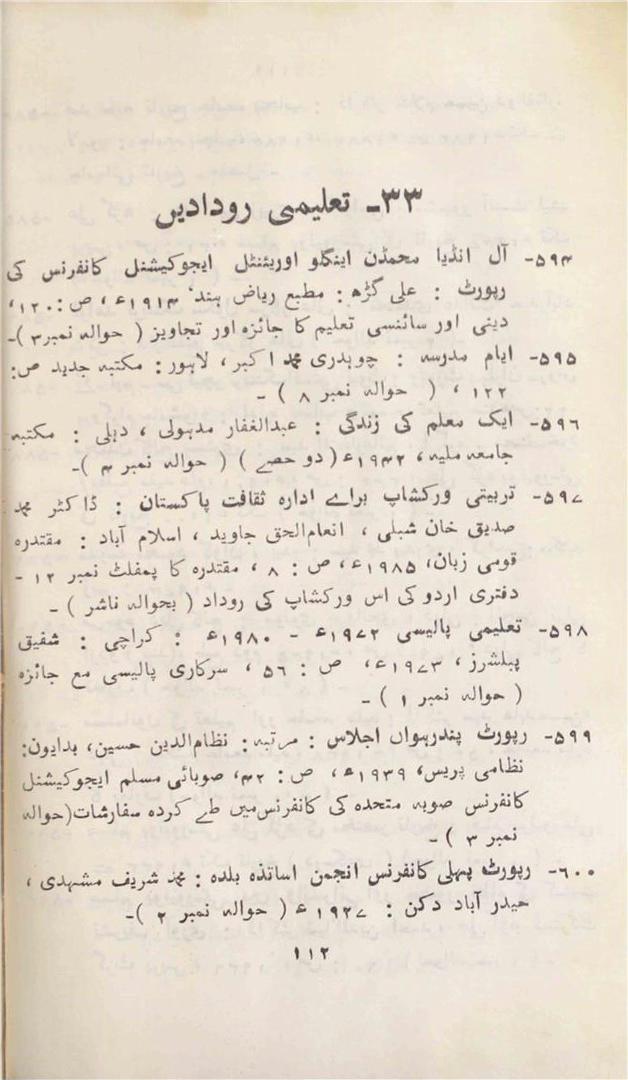 ۳۳۔ تعلیمی رودادیں
۵۹۴۔ آل انڈیا محمڈن اینگلو اوریئنٹل ایجوکیشنل کانفرنس کی
رپورٹ : علی گڑھ : مطبع ریاض ہند، ۱۹۱۴ء ، ص : ۱۲۰،
دینی اور سائنسی تعلیم کا جائزہ اور تجاویز ( حوالہ نمبر ۳ )۔
۵۹۵۔ ایام مدرسہ : چوہدری محمد اکبر ، لاہور : مکتبہ جدید ص:
۱۲۲ ، ( حوالہ نمبر ۸ ) ۔
۵۹۶۔ ایک معلم کی زندگی : عبدالغفار مدہولی ، دہلی : مکتبہ
جامعہ ملیہ، ۱۹۴۲ء ( دو حصے ) ( حوالہ نمبر ۴ )۔
۵۹۷۔ تربیتی ورکشاپ برائے ادارہ ثقافت پاکستان : ڈاکٹر محمد
صدیق خان شبلی ، انعام الحق جاوید ، اسلام آباد : مقتدرہ
قومی زبان، ۱۹۸۵ء ، ص : ۸ ، مقتدرہ کا پمفلٹ نمبر ۱۲ ۔
دفتری اردو کی اس ورکشاپ کی روداد ( بحوالہ ناشر ) ۔
۵۹۸۔ تعلیمی پالیسی ۱۹۷۲ء - ۱۹۸۰ء : کراچی : شفیق
پبلشرز ، ۱۹۷۳ء، ص : ۵۶ ، سرکاری پالیسی مع جائزہ
( حوالہ نمبر ۱ ) ۔
۵۹۹۔ رپورٹ پندرہواں اجلاس : مرتبہ : نظام الدین حسین، بدایون:
نظامی پریس، ۱۹۳۹ء، ص : ۴۲، صوبائی مسلم ایجوکیشنل
کانفرنس صوبہ متحدہ کی کانفرنس میں طے کردہ سفارشات (حوالہ
نمبر ۳ ) ۔
۶۰۰۔ رپورٹ پہلی کانفرنس انجمن اساتذہ بلدہ : محمد شریف مشہدی ،
حیدر آباد دکن : ۱۹۲۷ء ( حوالہ نمبر ۲ )۔
۱۱۲